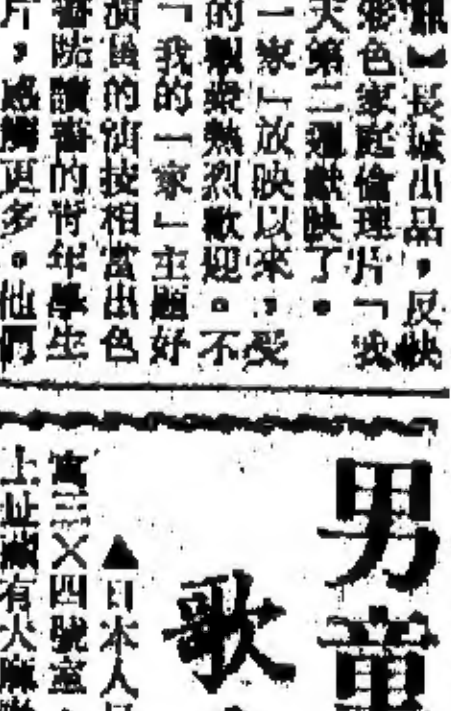 訊】長城出品，反映
色家庭倫理片「我
天第二週獻映了。
一家」放映以來，受
的觀衆熱烈歡迎。不
「我的一家」主題好
演員的演技相當出色
書院讀書的青年學生
片，感觸更多。他們
男童
歌
▲日本人
三X四號室
上址藏有大麻